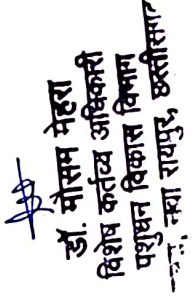 डॉ. मौसम मेहरा
विशेष कर्तव्य अधिकारी
पशुधन विकास विभाग
नवा रायपुर, छत्तीसगढ़